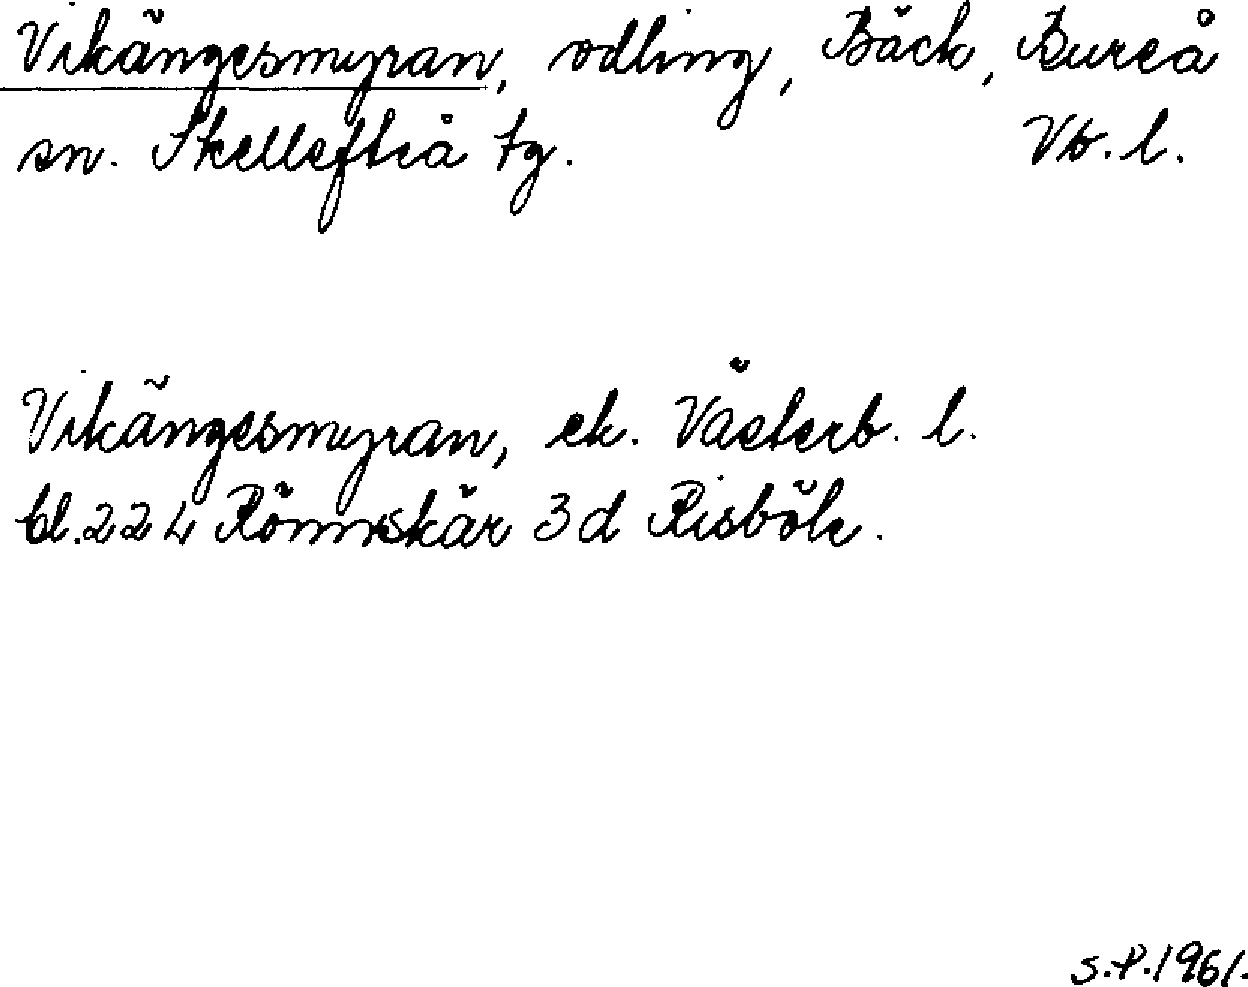 Vikängesmyran, odling, Bäck, Bureå
sn. Skellefteå tg. Vb. l.
Vikängesmyran, ek. Västerb. l.
bl. 224 Rönnskär 3d Risböle.
S.P. 1961.